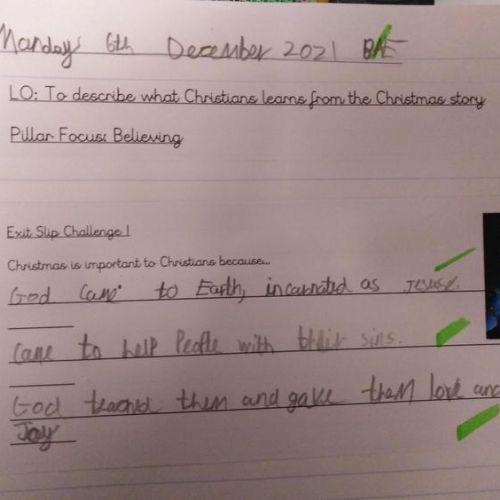 Mandays 6th December 2021
LO: To describe what Christians learns from the Christmas story
Pillar Focus: Believing
Exit Slip Challenge 1
Christmas is important to Christians because...
God came to Earth, incarnated as Jesus.
Came to help People with their sins.
God teached them and gave them love and
Joy